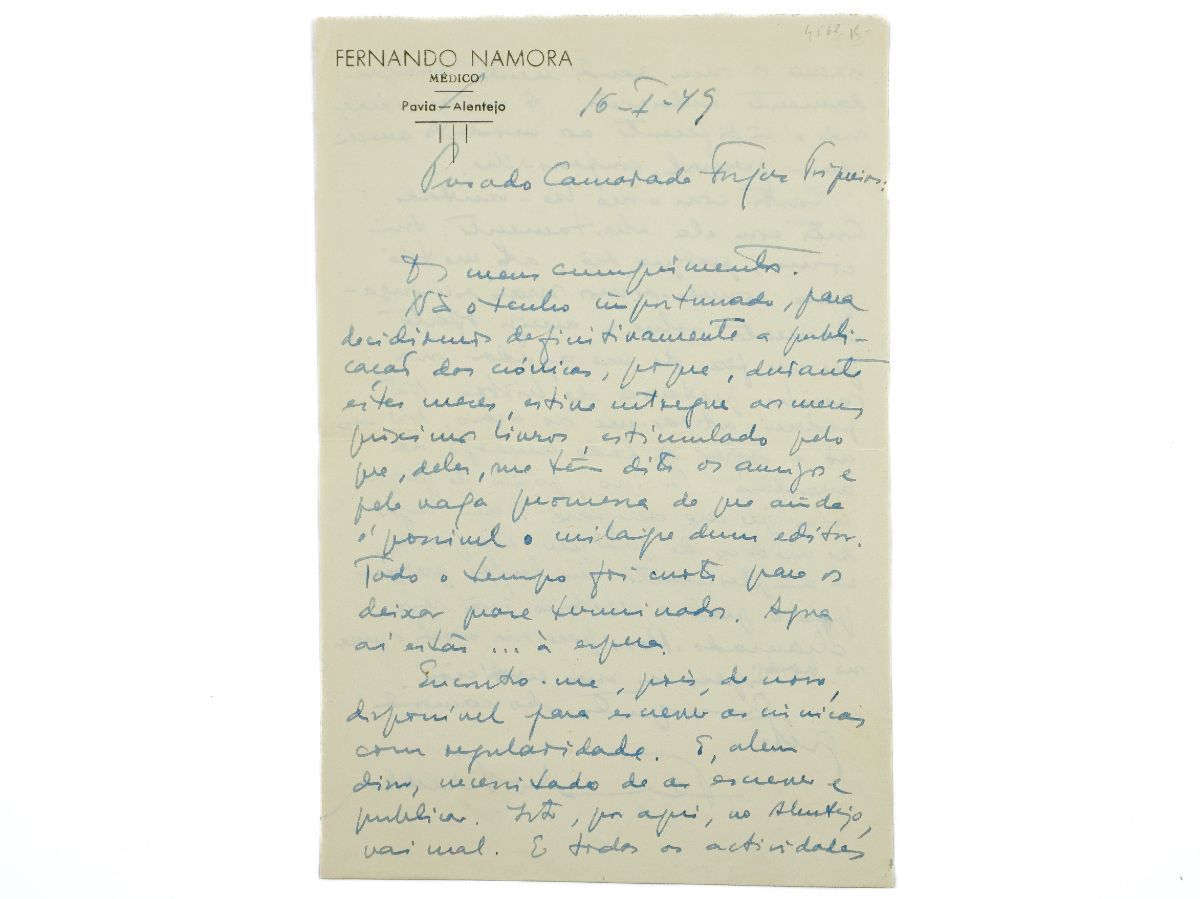 FERNANDO NAMORA
MÉDICO
Pavia—Alentejo
16-I-49
Prezado Camarada Forjaz Trigueiros:
Os meus cumprimentos.
Não o tenho importunado, para
decidirmos definitivamente a publi-
cação das crónicas, porque, durante
estes meses, estive entregue aos meus
próximos livros, estimulado pelo
que, deles, me têm dito os amigos e
pela vaga promessa de que ainda
é possível o milagre dum editor.
Todo o tempo foi curto para os
deixar quase terminados. Agora
aí estão ... à espera.
Encontro-me, pois, de novo,
disponível para escrever as crónicas
com regularidade. E, alem
disso, necessitado de as escrever e
publicar. Isto, por aqui, no Alentejo,
vai mal. E todas as actividades